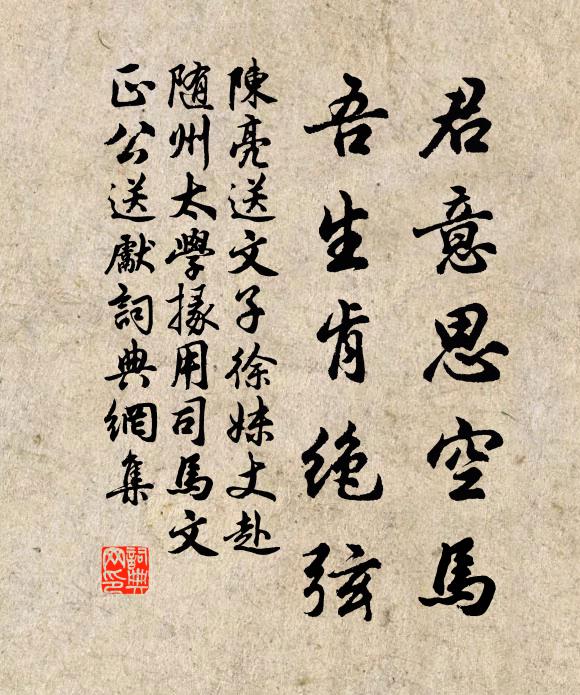 君意思空馬
吾生肯绝弦
陳亮送文子徐妹丈赴
随州太學掾用司馬文
正公送獻詞典網集
詞典網印